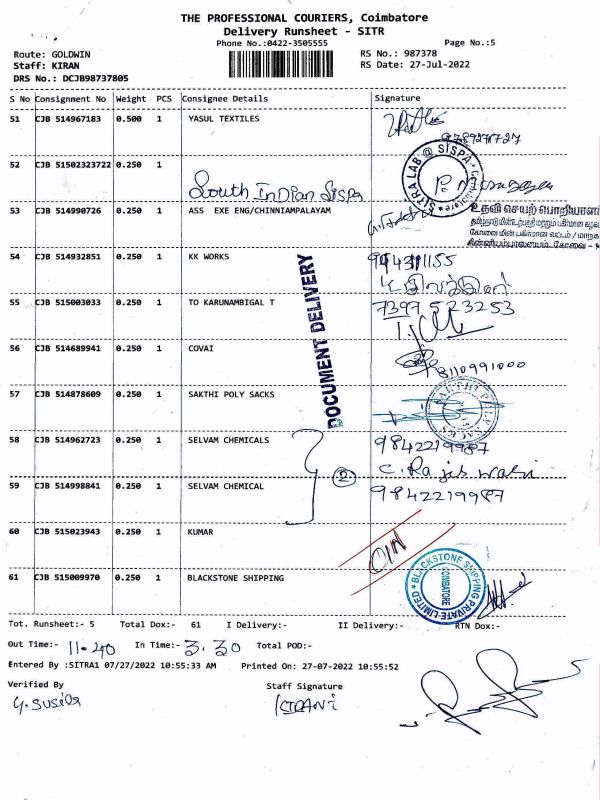 THE PROFESSIONAL COURIERS, Coimbatore
Delivery Runsheet - SITR
Phone No.:0422-3505555
Page No.:5
Route: GOLDWIN
RS No.: 987378
Staff: KIRAN
RS Date: 27-Jul-2022
DRS No.: DCJB98737805
S No Consignment No Weight PCS Consignee Details Signature
51 CJB 514967183 0.500 1 YASUL TEXTILES
52 CJB 51502323722 0.250 1
South Indian Sispa
SITRA LAB @ SISPA Coimbatore
53 CJB 514990726 0.250 1 ASS EXE ENG/CHINNIAMPALAYAM
உதவி செயற் பொறியாளர்
54 CJB 514932851 0.250 1 KK WORKS
55 CJB 515003033 0.250 1 TO KARUNAMBIGAL T 7397 523253
DOCUMENT DELIVERY
56 CJB 514689941 0.250 1 COVAI
8110991000
57 CJB 514878609 0.250 1 SAKTHI POLY SACKS
SAKTHI POLY SACKS
58 CJB 514962723 0.250 1 SELVAM CHEMICALS 9842219987
2
59 CJB 514998841 0.250 1 SELVAM CHEMICAL 9842219987
60 CJB 515023943 0.250 1 KUMAR
61 CJB 515009970 0.250 1 BLACKSTONE SHIPPING
BLACKSTONE SHIPPING PRIVATE LIMITED COIMBATORE
Tot. Runsheet:- 5 Total Dox:- 61 I Delivery:- II Delivery:- RTN Dox:-
Out Time:- 11-40 In Time:- 3.30 Total POD:-
Entered By :SITRA1 07/27/2022 10:55:33 AM Printed On: 27-07-2022 10:55:52
Verified By Staff Signature